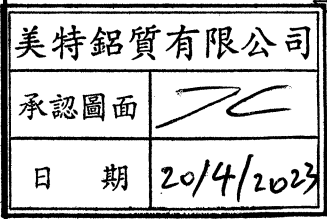 美特鋁質有限公司
承認圖面
日 期 20/4/2023